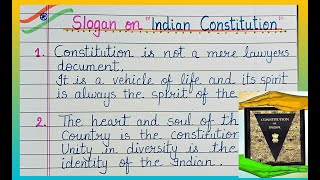 Slogan on "Indian Constitution"
1. Constitution is not a mere lawyers
document.
It is a vehicle of life and its spirit
is always the spirit of the
2. The heart and soul of th
Country is the constitution
Unity in diversity is the
identity of the Indian.
CONSTITUTION
OF
INDIA